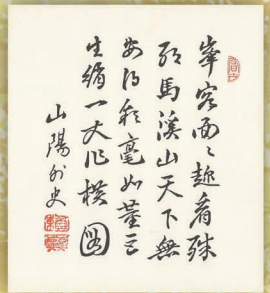 峯容面〻趣看殊
耶馬溪山天下無
安得彩毫如董巨
生縑一丈作横圖
山陽外史